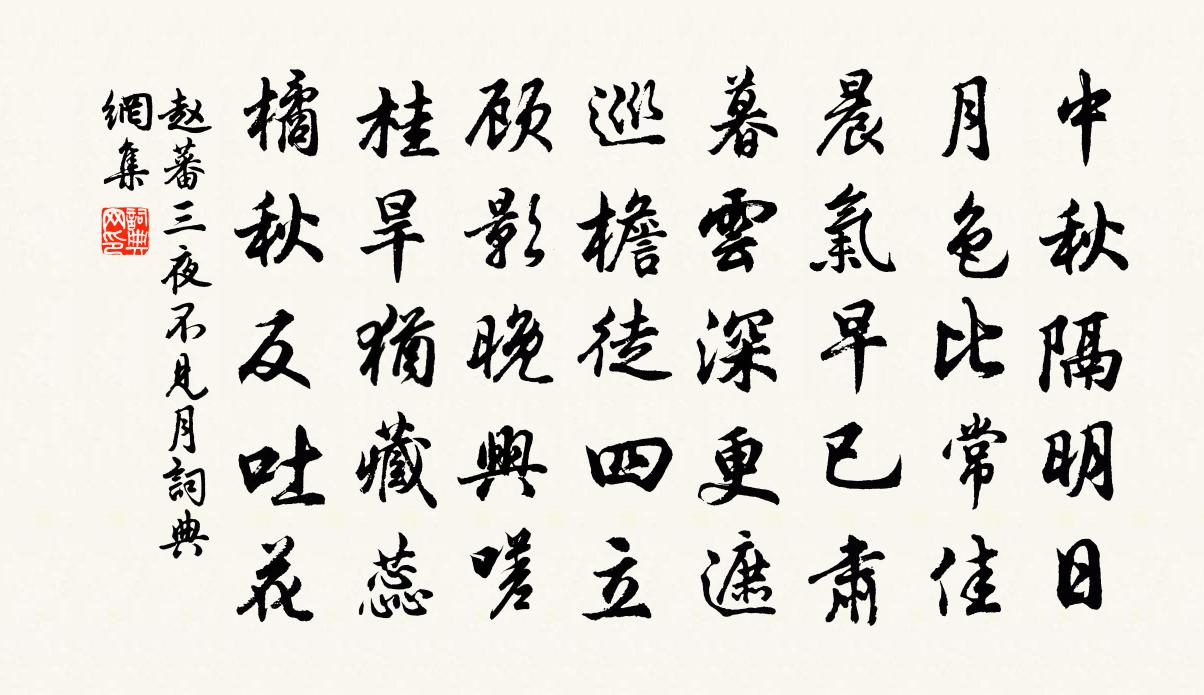 中秋隔明日
月色比常佳
晨氣早已肅
暮雲深更遮
巡檐徒四立
顾影晚興嗟
桂旱猶藏蕊
橘秋反吐花
赵蕃三夜不見月詞典
網集
詞典网印